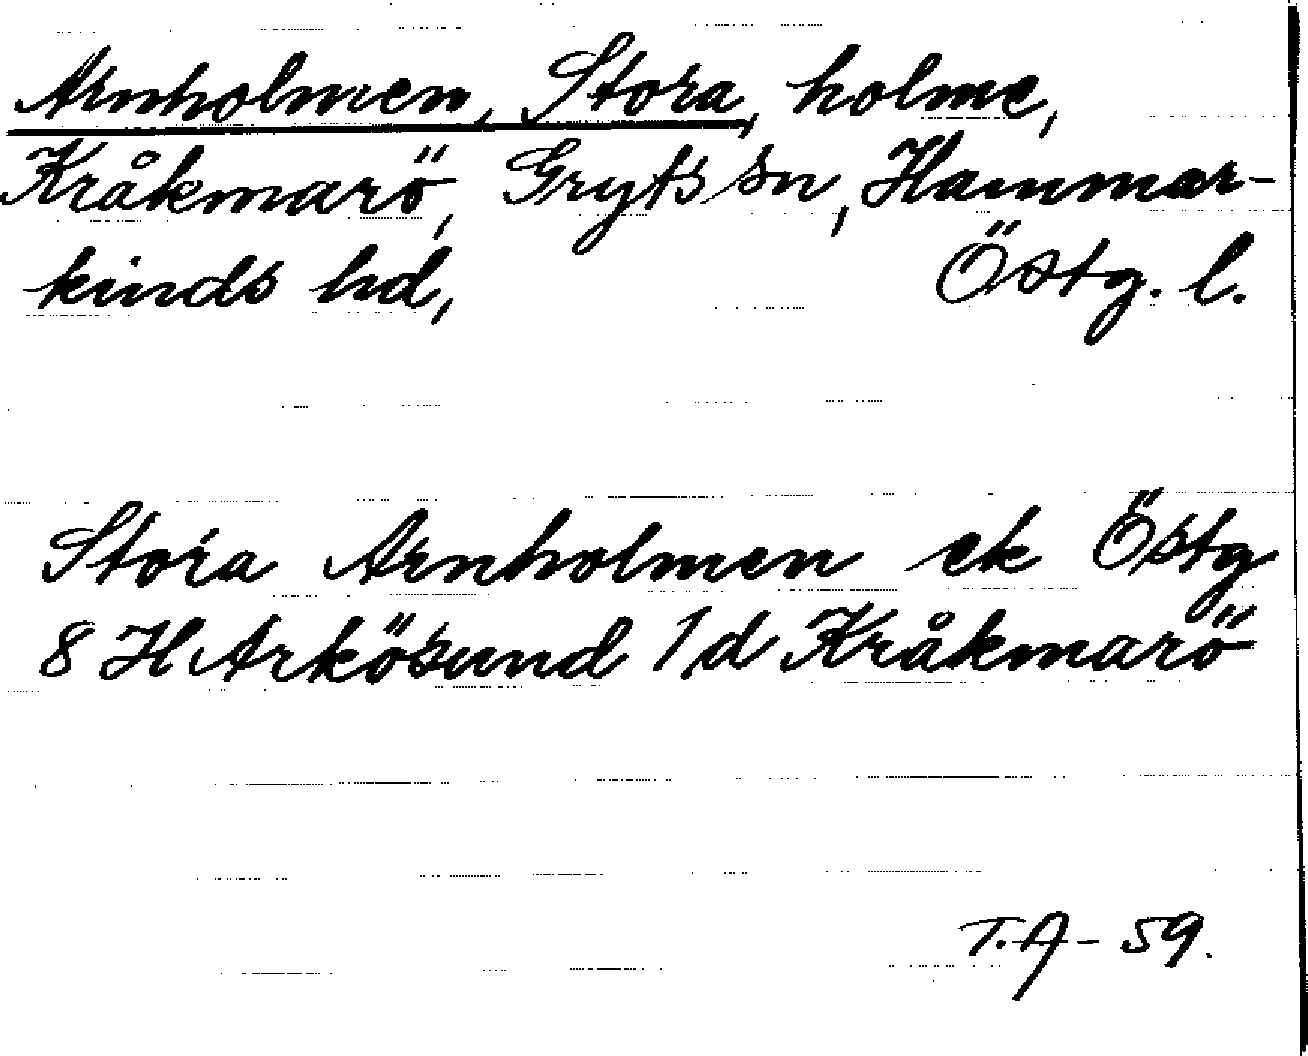 Arnholmen, Stora, holme,
Kråkmarö, Gryts sn, Hammar-
kinds hd, Östg. l.
Stora Arnholmen ek Östg
8 H Arkösund 1 d Kråkmarö
T.A-59.